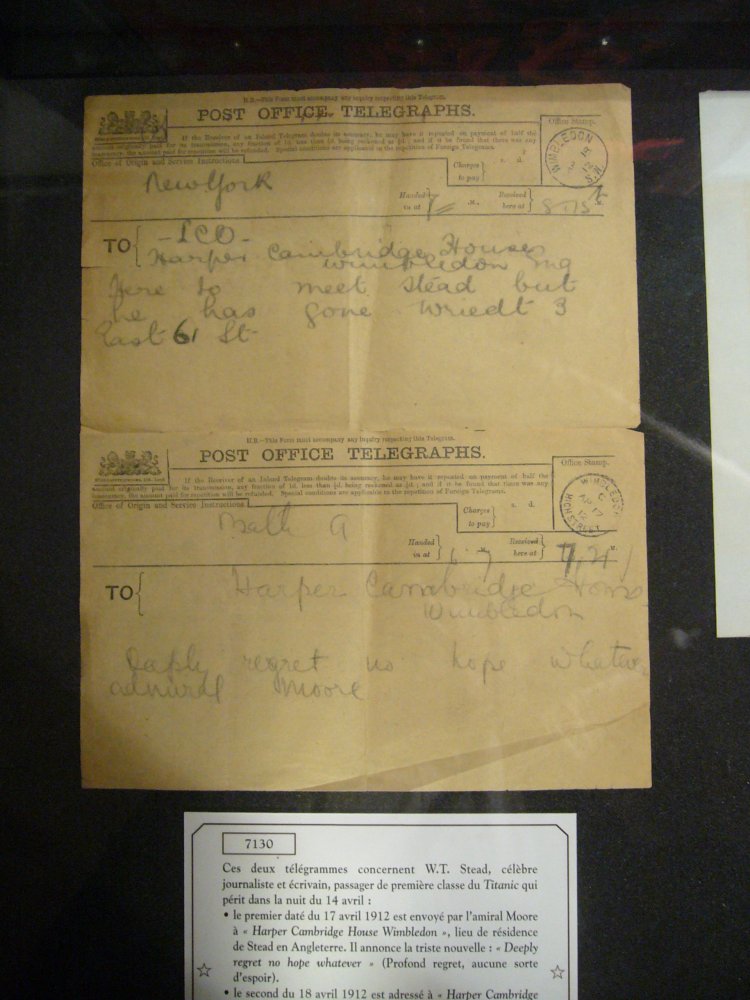 N.B.—This Form must accompany any inquiry respecting this Telegram.
POST OFFICE TELEGRAPHS.
If the Receiver of an Inland Telegram doubts its accuracy, he may have it repeated on payment of half the
amount originally paid for its transmission, any fraction of 1d. less than ½d. being reckoned as ½d.; and if it be found that there was any
inaccuracy, the amount paid for repetition will be refunded. Special conditions are applicable to the repetition of Foreign Telegrams.
Office Stamp.
WIMBLEDON
18
12
S.W.
Office of Origin and Service Instructions.
Charges to pay
s. d.
New York
Handed in at
Received here at
TO
Harper Cambridge House
Wimbledon
Here to meet Stead but
he has gone Wriedt 3
East 61 St
N.B.—This Form must accompany any inquiry respecting this Telegram.
POST OFFICE TELEGRAPHS.
If the Receiver of an Inland Telegram doubts its accuracy, he may have it repeated on payment of half the
amount originally paid for its transmission, any fraction of 1d. less than ½d. being reckoned as ½d.; and if it be found that there was any
inaccuracy, the amount paid for repetition will be refunded. Special conditions are applicable to the repetition of Foreign Telegrams.
Office Stamp.
WIMBLEDON
AP 17
12
HIGH STREET
Office of Origin and Service Instructions.
Charges to pay
s. d.
Handed in at
Received here at
TO
Harper Cambridge House
Wimbledon
regret no hope whatever
admiral Moore
7130
Ces deux télégrammes concernent W.T. Stead, célèbre
journaliste et écrivain, passager de première classe du Titanic qui
périt dans la nuit du 14 avril :
• le premier daté du 17 avril 1912 est envoyé par l'amiral Moore
à « Harper Cambridge House Wimbledon », lieu de résidence
de Stead en Angleterre. Il annonce la triste nouvelle : « Deeply
regret no hope whatever » (Profond regret, aucune sorte
d'espoir).
• le second du 18 avril 1912 est adressé à « Harper Cambridge